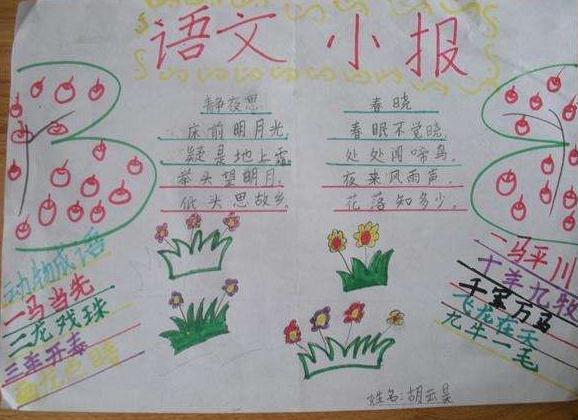 语文小报
静夜思
床前明月光,
疑是地上霜
举头望明月,
低头思故乡
春晓
春眠不觉晓,
处处闻啼鸟,
夜来风雨声,
花落知多少,
动物成语
一马当先
二龙戏珠
三羊开泰
一马平川
十羊九牧
千军万马
飞龙在天
九牛一毛
姓名:胡云昊